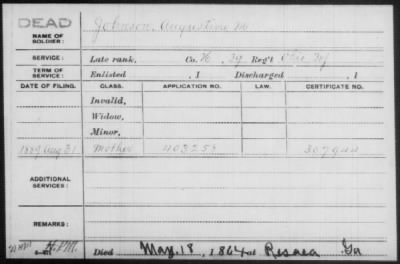 DEAD
NAME OF SOLDIER: Johnson, Augustine M
SERVICE: Late rank, Co. K, 39 Reg't Ohio Inf
TERM OF SERVICE: Enlisted , 1 Discharged , 1
DATE OF FILING. CLASS. APPLICATION NO. LAW. CERTIFICATE NO.
Invalid,
Widow,
Minor,
1889 Aug 31 Mother 403255
ADDITIONAL SERVICES:
REMARKS:
Died May 18, 1864 at Resaca Ga